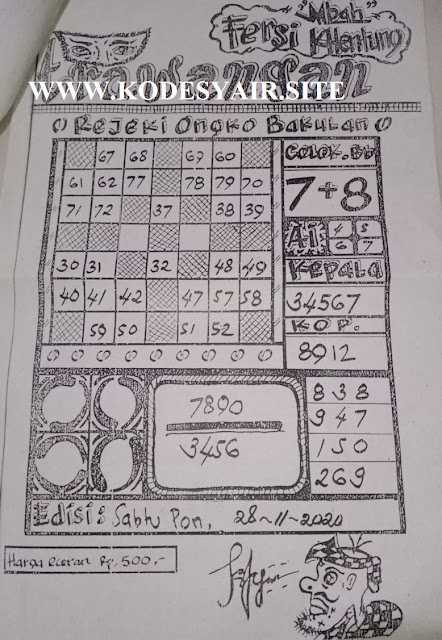 "Mbah"
Fersi KHentung
Trawangan
WWW.KODESYAIR.SITE
Rejeki Ongko Bakulan
67 68 69 60
61 62 77 78 79 70
71 72 37 38 39
30 31 32 48 49
40 41 42 47 57 58
59 50 51 52
COLOK.Bb
7+8
Ai 4 5
6 7
KEPALA
34567
KOP.
8912
7890
3456
838
947
150
269
Edisi: Sabtu Pon, 28-11-2020
Harga eceran Rp.500.-